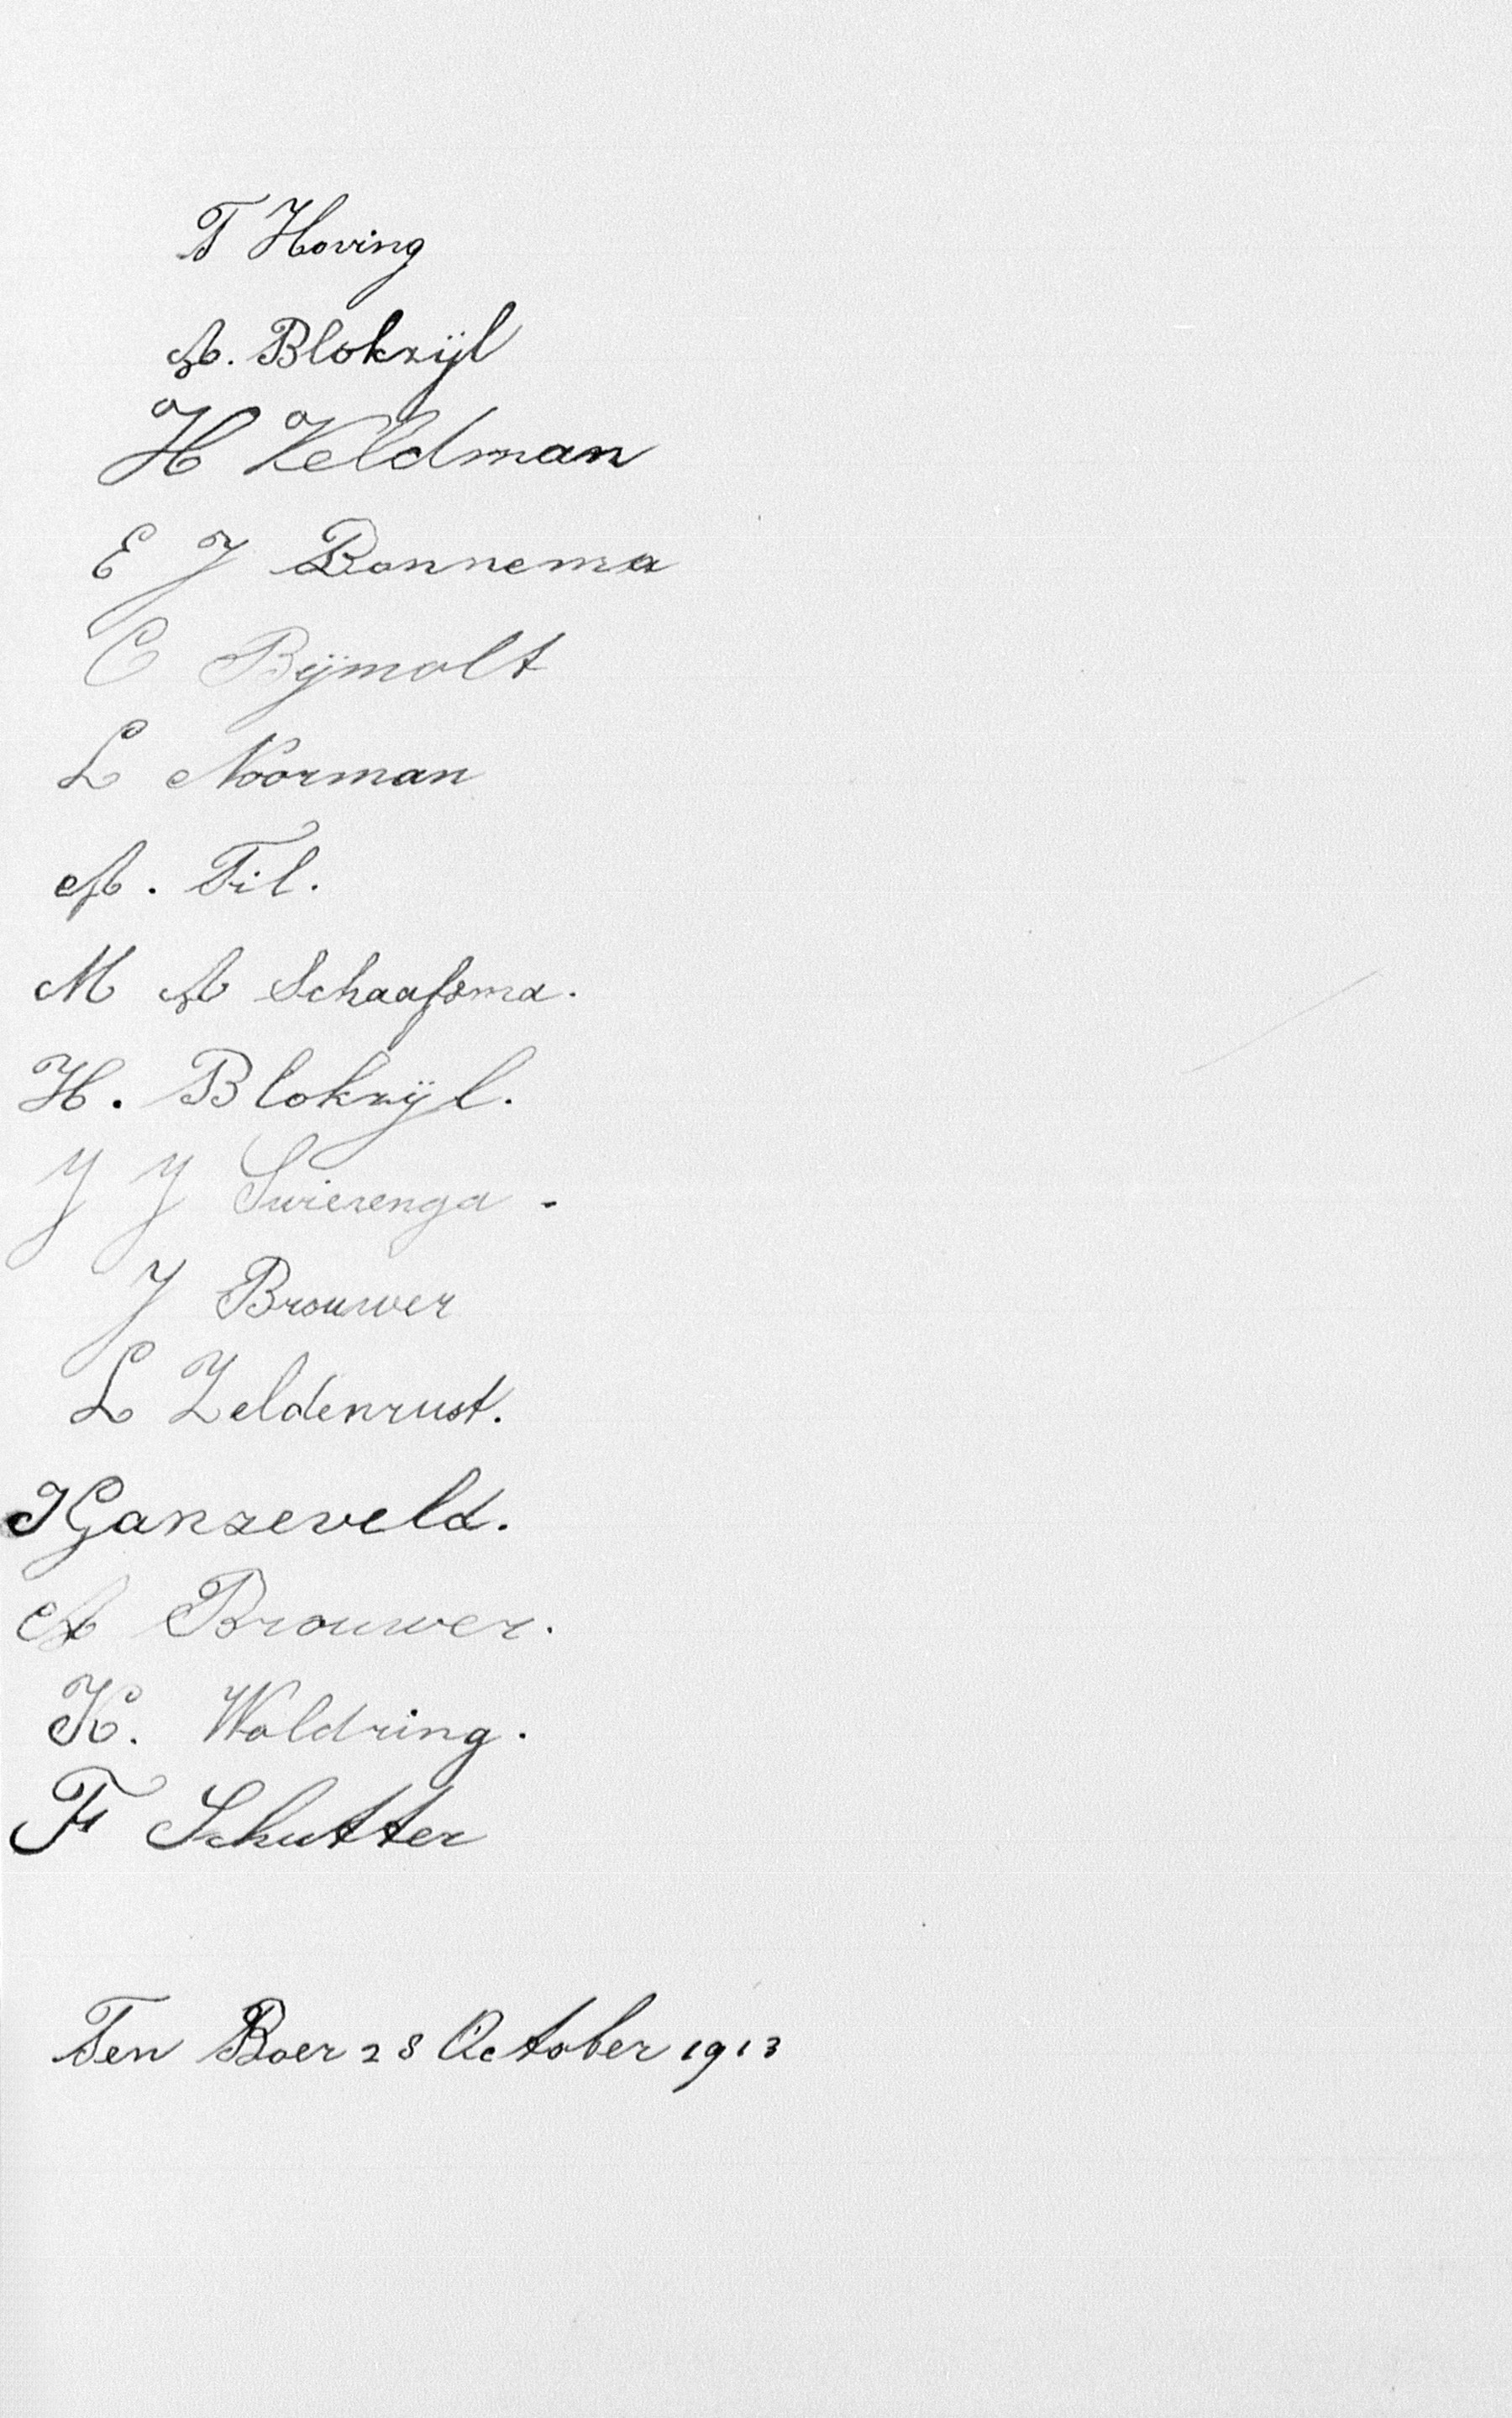 T Hoving
A. Blokzijl
H Veldman
E J Bonnema
C Bijmolt
L Noorman
A. Til.
M A Schaafsma.
H. Blokzijl.
J J Swierenga.
J Brouwer
L Zeldenrust.
J Ganzeveld.
A Brouwer.
K. Woldring.
F Schutter
Ten Boer 28 October 1913